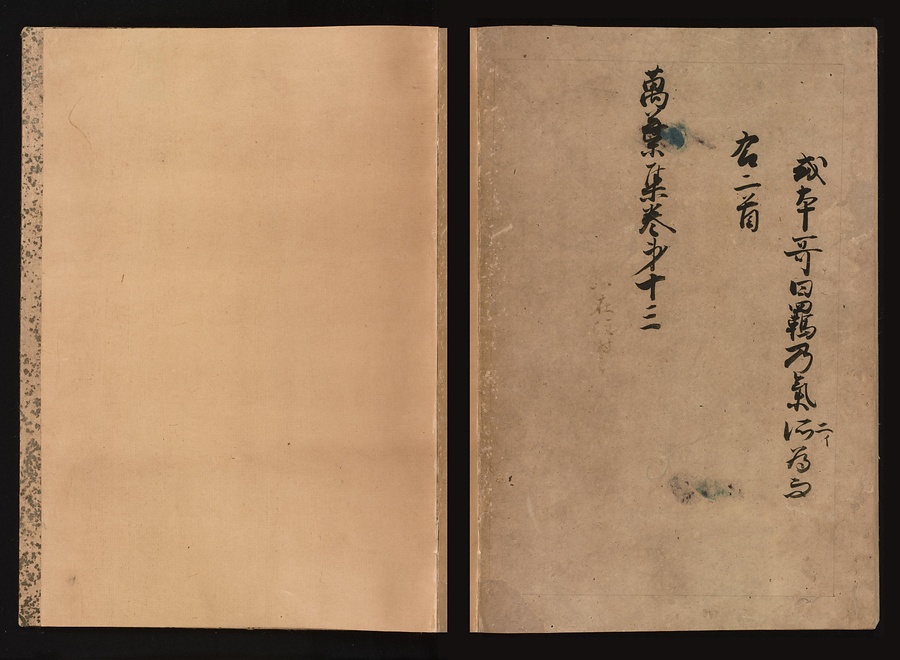 或本哥曰羈乃氣為而
二イ
右二首
萬葉集巻第十三